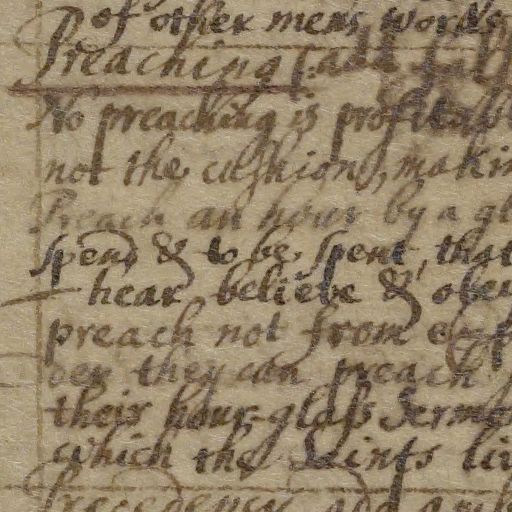 of other mens words
Preaching
No preaching is profitabl
not the cushion, makin
Preach an hour by a gl
spend & to be spent, that
hear believe & obey
preach not from
der they can preach
their hour-glass Sermo
which the Saints li
precedency add